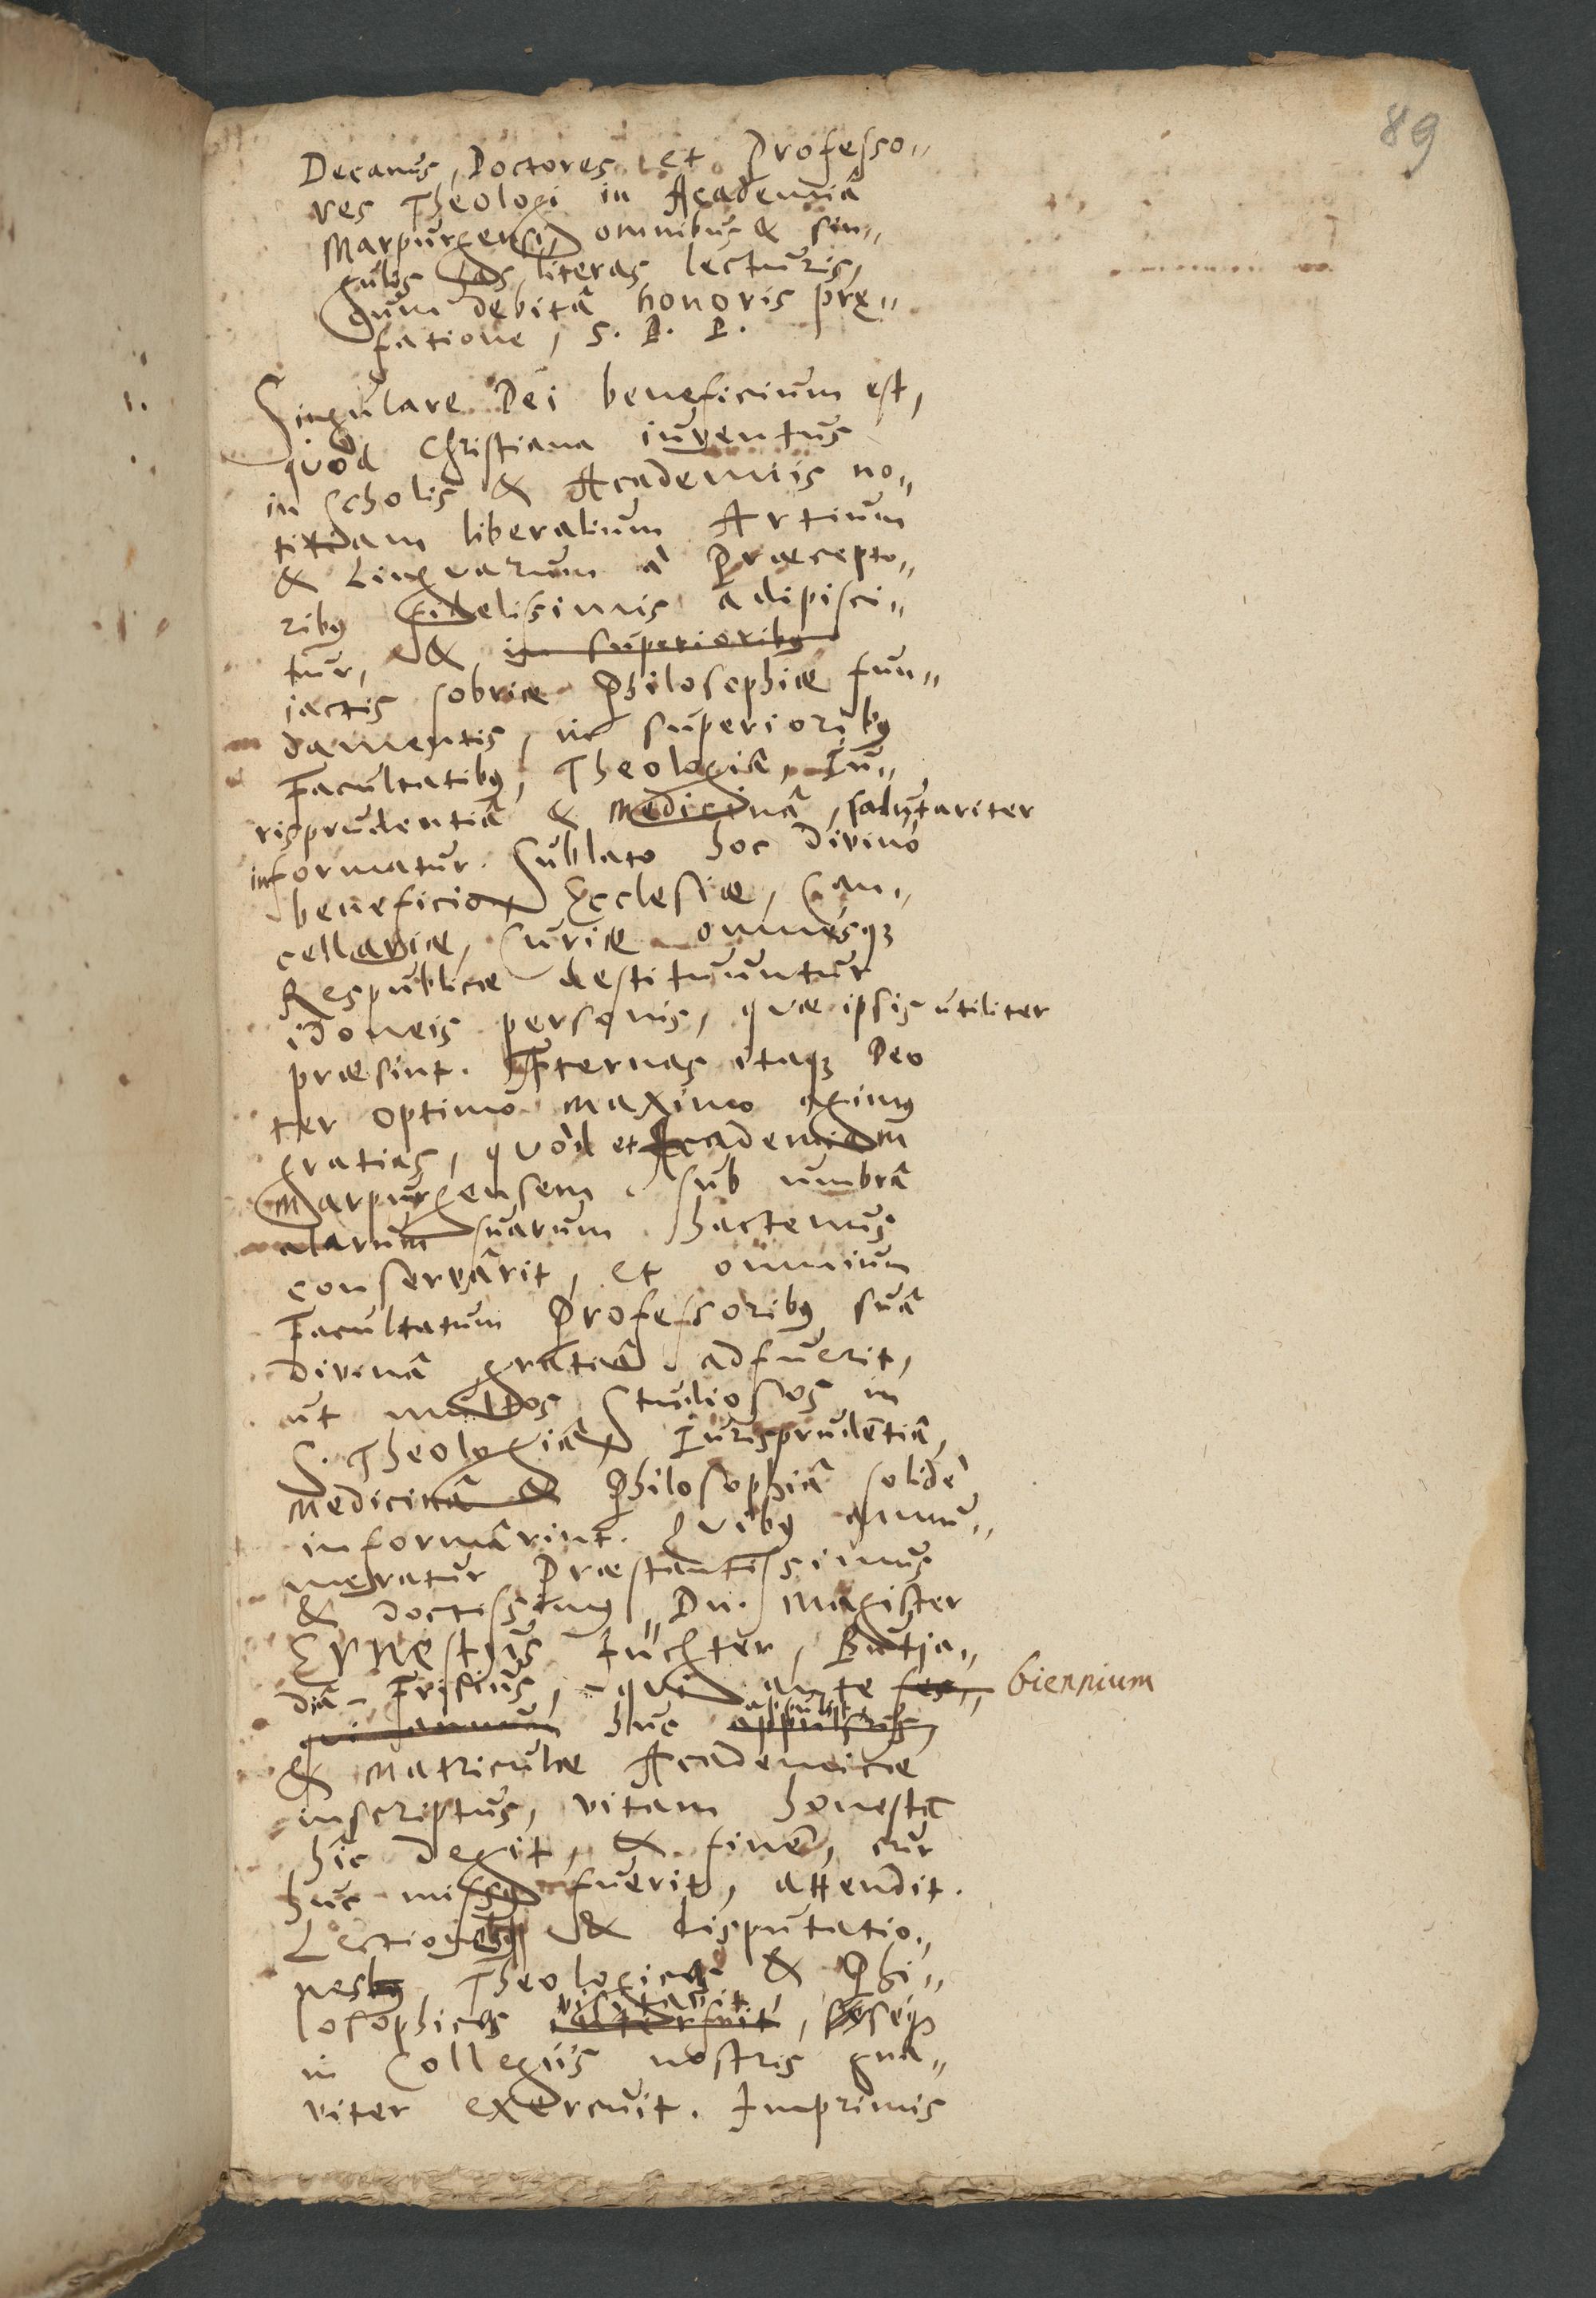 89
Decanus, Doctores et Professo„
res Theologi in Academiâ
Marpurgensi, omnibus & sin„
gulis has literas lecturis,
Cum debitâ honoris præ„
fatione, S. P. P.
Singulare Dei beneficium est,
quòd Christiana iuventus
in scholis & Academiis no„
titiam liberalium Artium
& Linguarum à Præcepto„
ribus fidelissimis adipisci„
tur, & in superioribus
iactis sobriæ Philosophiæ fun„
damentis, in superioribus
Facultatibus, Theologiâ, Iu„
risprudentiâ & Medicinâ, salutariter
informatur. Sublato hoc divino
beneficio Ecclesiæ, Can„
cellariæ, Curiæ omnesque
Respublicæ destituuntur
idoneis personis, quæ ipsis utiliter
præsint. Æternas itaque Deo
ter optimo maximo agimus
gratias, quòd et Academiam
Marpurgensem sub umbrâ
alarum suarum hactenus
conservârit, et omnium
Facultatum Professoribus suâ
divinâ gratiâ adfuerit,
ut multos Studiosos in
S. Theologiâ Iurisprudētiâ,
Medicinâ & Philosophiâ solidè
informârint. Quibus annu„
meratur Præstantissimus
& doctissimus Dn. Magister
Ernestus Füchter, Butja„
diâ-Frisius, qui ante ses„ biennium
qui annum huc appulit appulsus,
& Matriculæ Academicæ
inscriptus, vitam honestè
hîc degit, & finem, cur
huc missus fuerit, attendit.
Lectiones & disputatio„
nes Theologicas & Phi„
losophicas visitavit interfuit, seseque
in Collegiis nostris gna„
viter exercuit. Imprimis